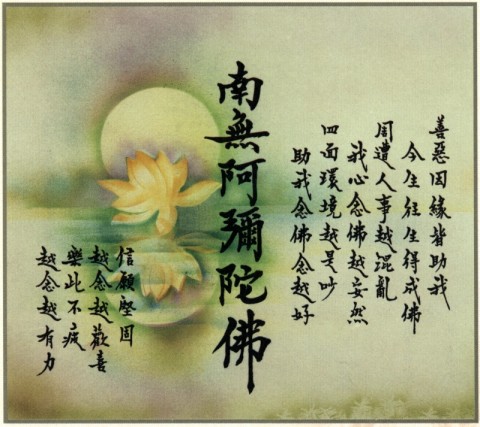 善惡因緣皆助我
今生往生得成佛
周遭人事越混亂
我心念佛越安然
四面環境越是吵
助我念佛念越好
南無阿彌陀佛
信願堅固
越念越歡喜
樂此不疲
越念越有力